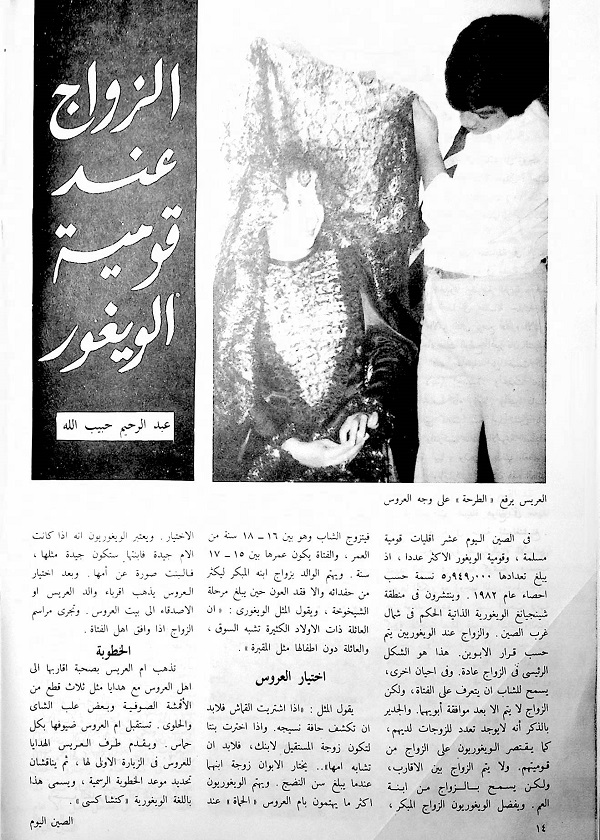 الزواج
عند
قومية
الويغور
عبد الرحيم حبيب الله
العريس يرفع «الطرحة» على وجه العروس
فى الصين اليوم عشر اقليات قومية
مسلمة ، وقومية الويغور الاكثر عددا ، اذ
يبلغ تعدادها ٥٫٩٤٩٫٠٠٠ نسمة حسب
احصاء عام ١٩٨٢ . وينتشرون فى منطقة
شينجيانغ الويغورية الذاتية الحكم فى شمال
غرب الصين . والزواج عند الويغوريين يتم
حسب قرار الابوين . هذا هو الشكل
الرئيسى فى الزواج عادة. وفى احيان اخرى،
يسمح للشاب ان يتعرف على الفتاة، ولكن
الزواج لا يتم الا بعد موافقة أبويهما. والجدير
بالذكر أنه لايوجد تعدد للزوجات لديهم،
كما يقتصر الويغوريون على الزواج من
قوميتهم. ولا يتم الزواج بين الاقارب،
ولكن يسمح بالزواج من ابنة
العم. ويفضل الويغوريون الزواج المبكر ،
فيتزوج الشاب وهو بين ١٦ـ ١٨ سنة من
العمر ، والفتاة يكون عمرها بين ١٥ـ ١٧
سنة . ويهتم الوالد بزواج ابنه المبكر ليكثر
من حفدائه والا فقد العون حين يبلغ مرحلة
الشيخوخة ، ويقول المثل الويغورى : « ان
العائلة ذات الاولاد الكثيرة تشبه السوق ،
والعائلة دون اطفالها مثل المقبرة » .
اختيار العروس
يقول المثل : «اذا اشتريت القماش فلابد
ان تكشف حافة نسيجه. واذا اخترت بنتا
لتكون زوجة المستقبل لابنك، فلابد ان
تشابه امها».. يختار الابوان زوجة ابنهما
عندما يبلغ سن النضج . ويهتم الويغوريون
اكثر ما يهتمون بام العروس «الحماة» عند
الاختيار. ويعتبر الويغوريون انه اذا كانت
الام جيدة فابنتها ستكون جيدة مثلها،
فالبنت صورة عن أمها. وبعد اختيار
العروس يذهب اقرباء والد العريس او
الاصدقاء الى بيت العروس . وتجرى مراسم
الزواج اذا وافق اهل الفتاة .
الخطوبة
تذهب ام العريس بصحبة اقاربها الى
اهل العروس مع هدايا مثل ثلاث قطع من
الأقمشة الصوفية وبعض علب الشاى
والحلوى. تستقبل ام العروس ضيوفها بكل
حماس. ويقدم طرف العريس الهدايا
للعروس فى الزيارة الاولى لها ، ثم يناقشان
تحديد موعد الخطوبة الرسمية ، ويسمى هذا
باللغة الويغورية «كتشا كسى» .
الصين اليوم
١٤